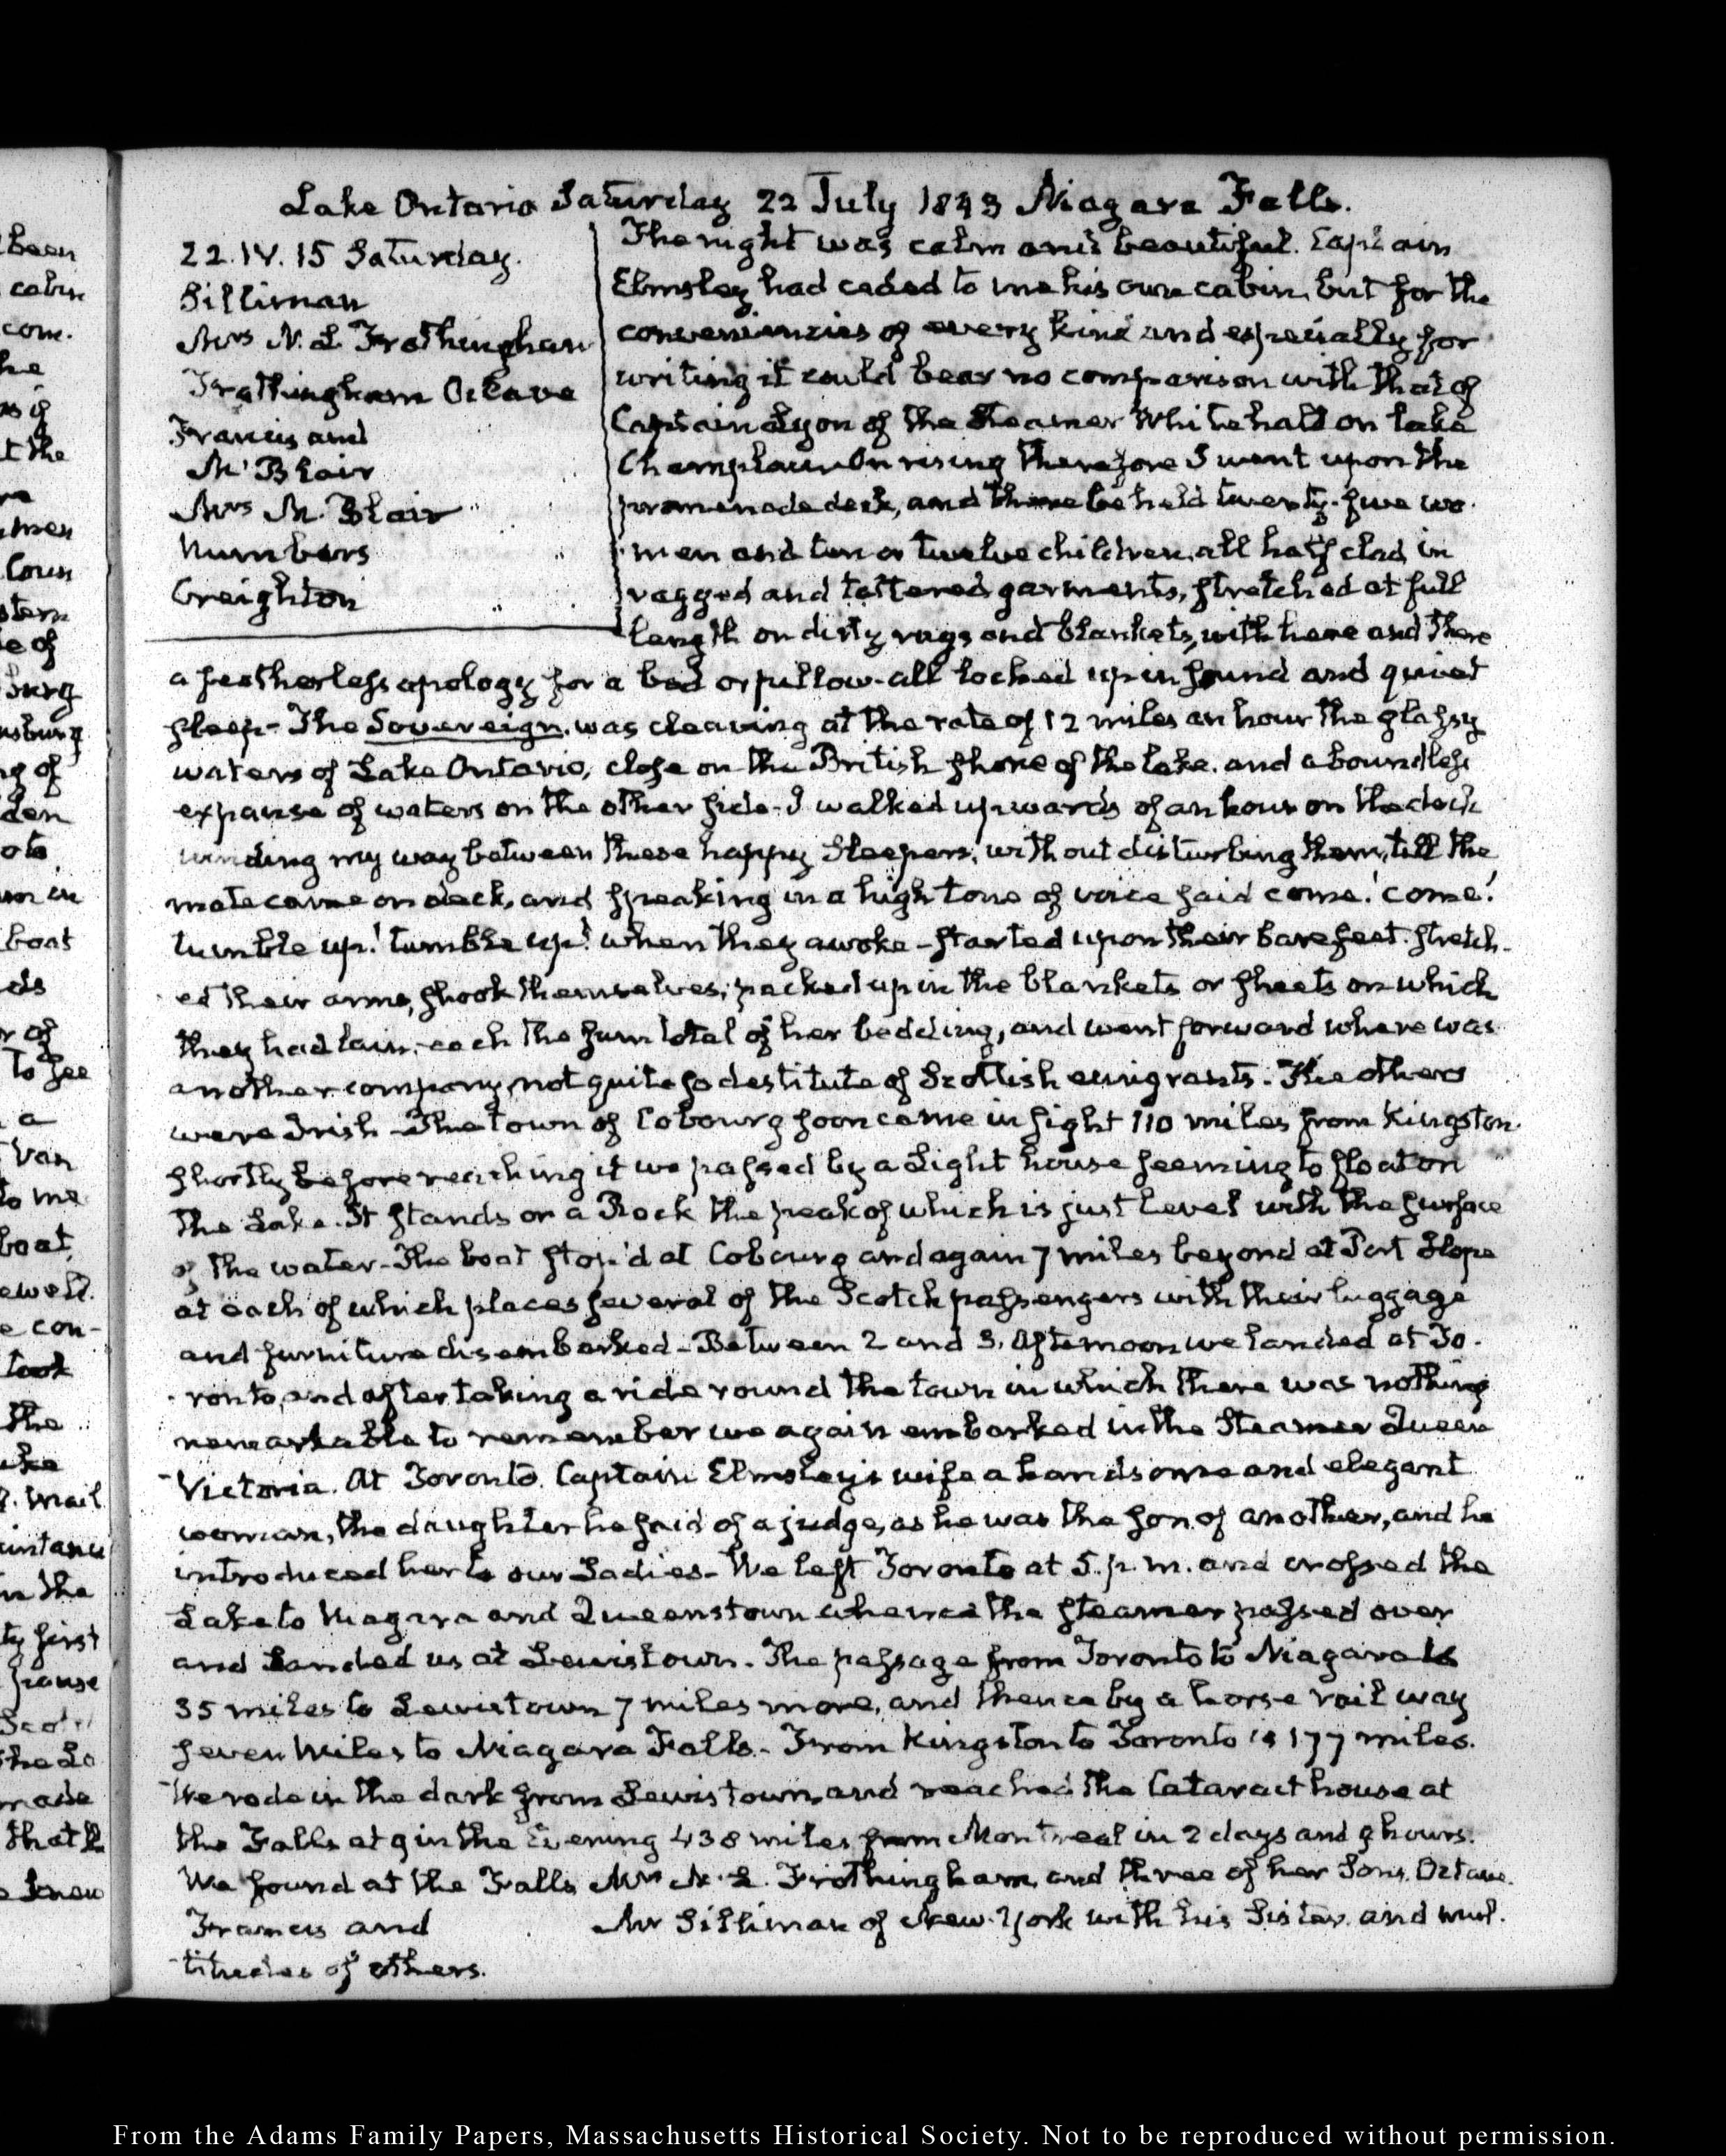 Lake Ontario Saturday 22 July 1843 Niagara Falls.
22. IV. 15 Saturday.
Silliman
Mrs N. L Frothingham
Frothingham Octave
Francis and
Mr Blair
Mrs M. Blair
Numbers
Creighton
The night was calm and beautiful. Captain
Elmsley had ceded to me his own cabin, but for the
conveniencies of every kind and especially for
writing it could bear no comparison with that of
Captain Lyon of the Steamer Whitehall on lake
Champlain On rising therefore I went upon the
promenade deck, and there beheld twenty-five wo-
men and ten or twelve children, all half clad, in
ragged and tattered garments, stretched at full
length on dirty rugs and blankets, with here and there
a featherless apology for a bed or pillow - all locked up in sound and quiet
sleep - The Sovereign was cleaving at the rate of 12 miles an hour the glassy
waters of Lake Ontario, close on the British shore of the lake. and a boundless
expanse of waters on the other side - I walked upwards of an hour on the deck
winding my way between these happy Sleepers, without disturbing them, till the
mate came on deck, and speaking in a high tone of voice said come! come!
tumble up! tumble up! when they awoke - started upon their bare feet. stretch-
ed their arms, shook themselves, packed up in the blankets or sheets on which
they had lain, each the sum total of her bedding, and went forward where was
another company, not quite so destitute of Scottish emigrants. The others
were Irish - The town of Cobourg soon came in sight 110 miles from Kingston.
shortly before reaching it we passed by a Light house seeming to float on
the Lake. It stands on a Rock the peak of which is just level with the surface
of the water - The boat stop'd at Cobourg and again 7 miles beyond at Port Hope
at each of which places several of the Scotch passengers with their luggage
and furniture disembarked - Between 2 and 3. Afternoon we landed at To-
ronto, and after taking a ride round the town in which there was nothing
remarkable to remember we again embarked in the Steamer Queen
Victoria. At Toronto. Captain Elmsley's wife a handsome and elegant
woman, the daughter he said of a judge, as he was the son of another, and he
introduced her to our Ladies - We left Toronto at 5. p. m. and crossed the
Lake to Niagara and Queenstown whence the steamer passed over
and Landed us at Lewistown. The passage from Toronto to Niagara is
35 miles to Lewistown 7 miles more, and thence by a horse rail way
seven Miles to Niagara Falls - From Kingston to Toronto is 177 miles.
We rode in the dark from Lewistown, and reached the Cataract house at
the Falls at 9 in the Evening 438 miles from Montreal in 2 days and 9 hours.
We found at the Falls Mrs N. L. Frothingham, and three of her Sons, Octave.
Francis and Mr Silliman of New-York with his Sister. and mul-
titudes of others.
From the Adams Family Papers, Massachusetts Historical Society. Not to be reproduced without permission.